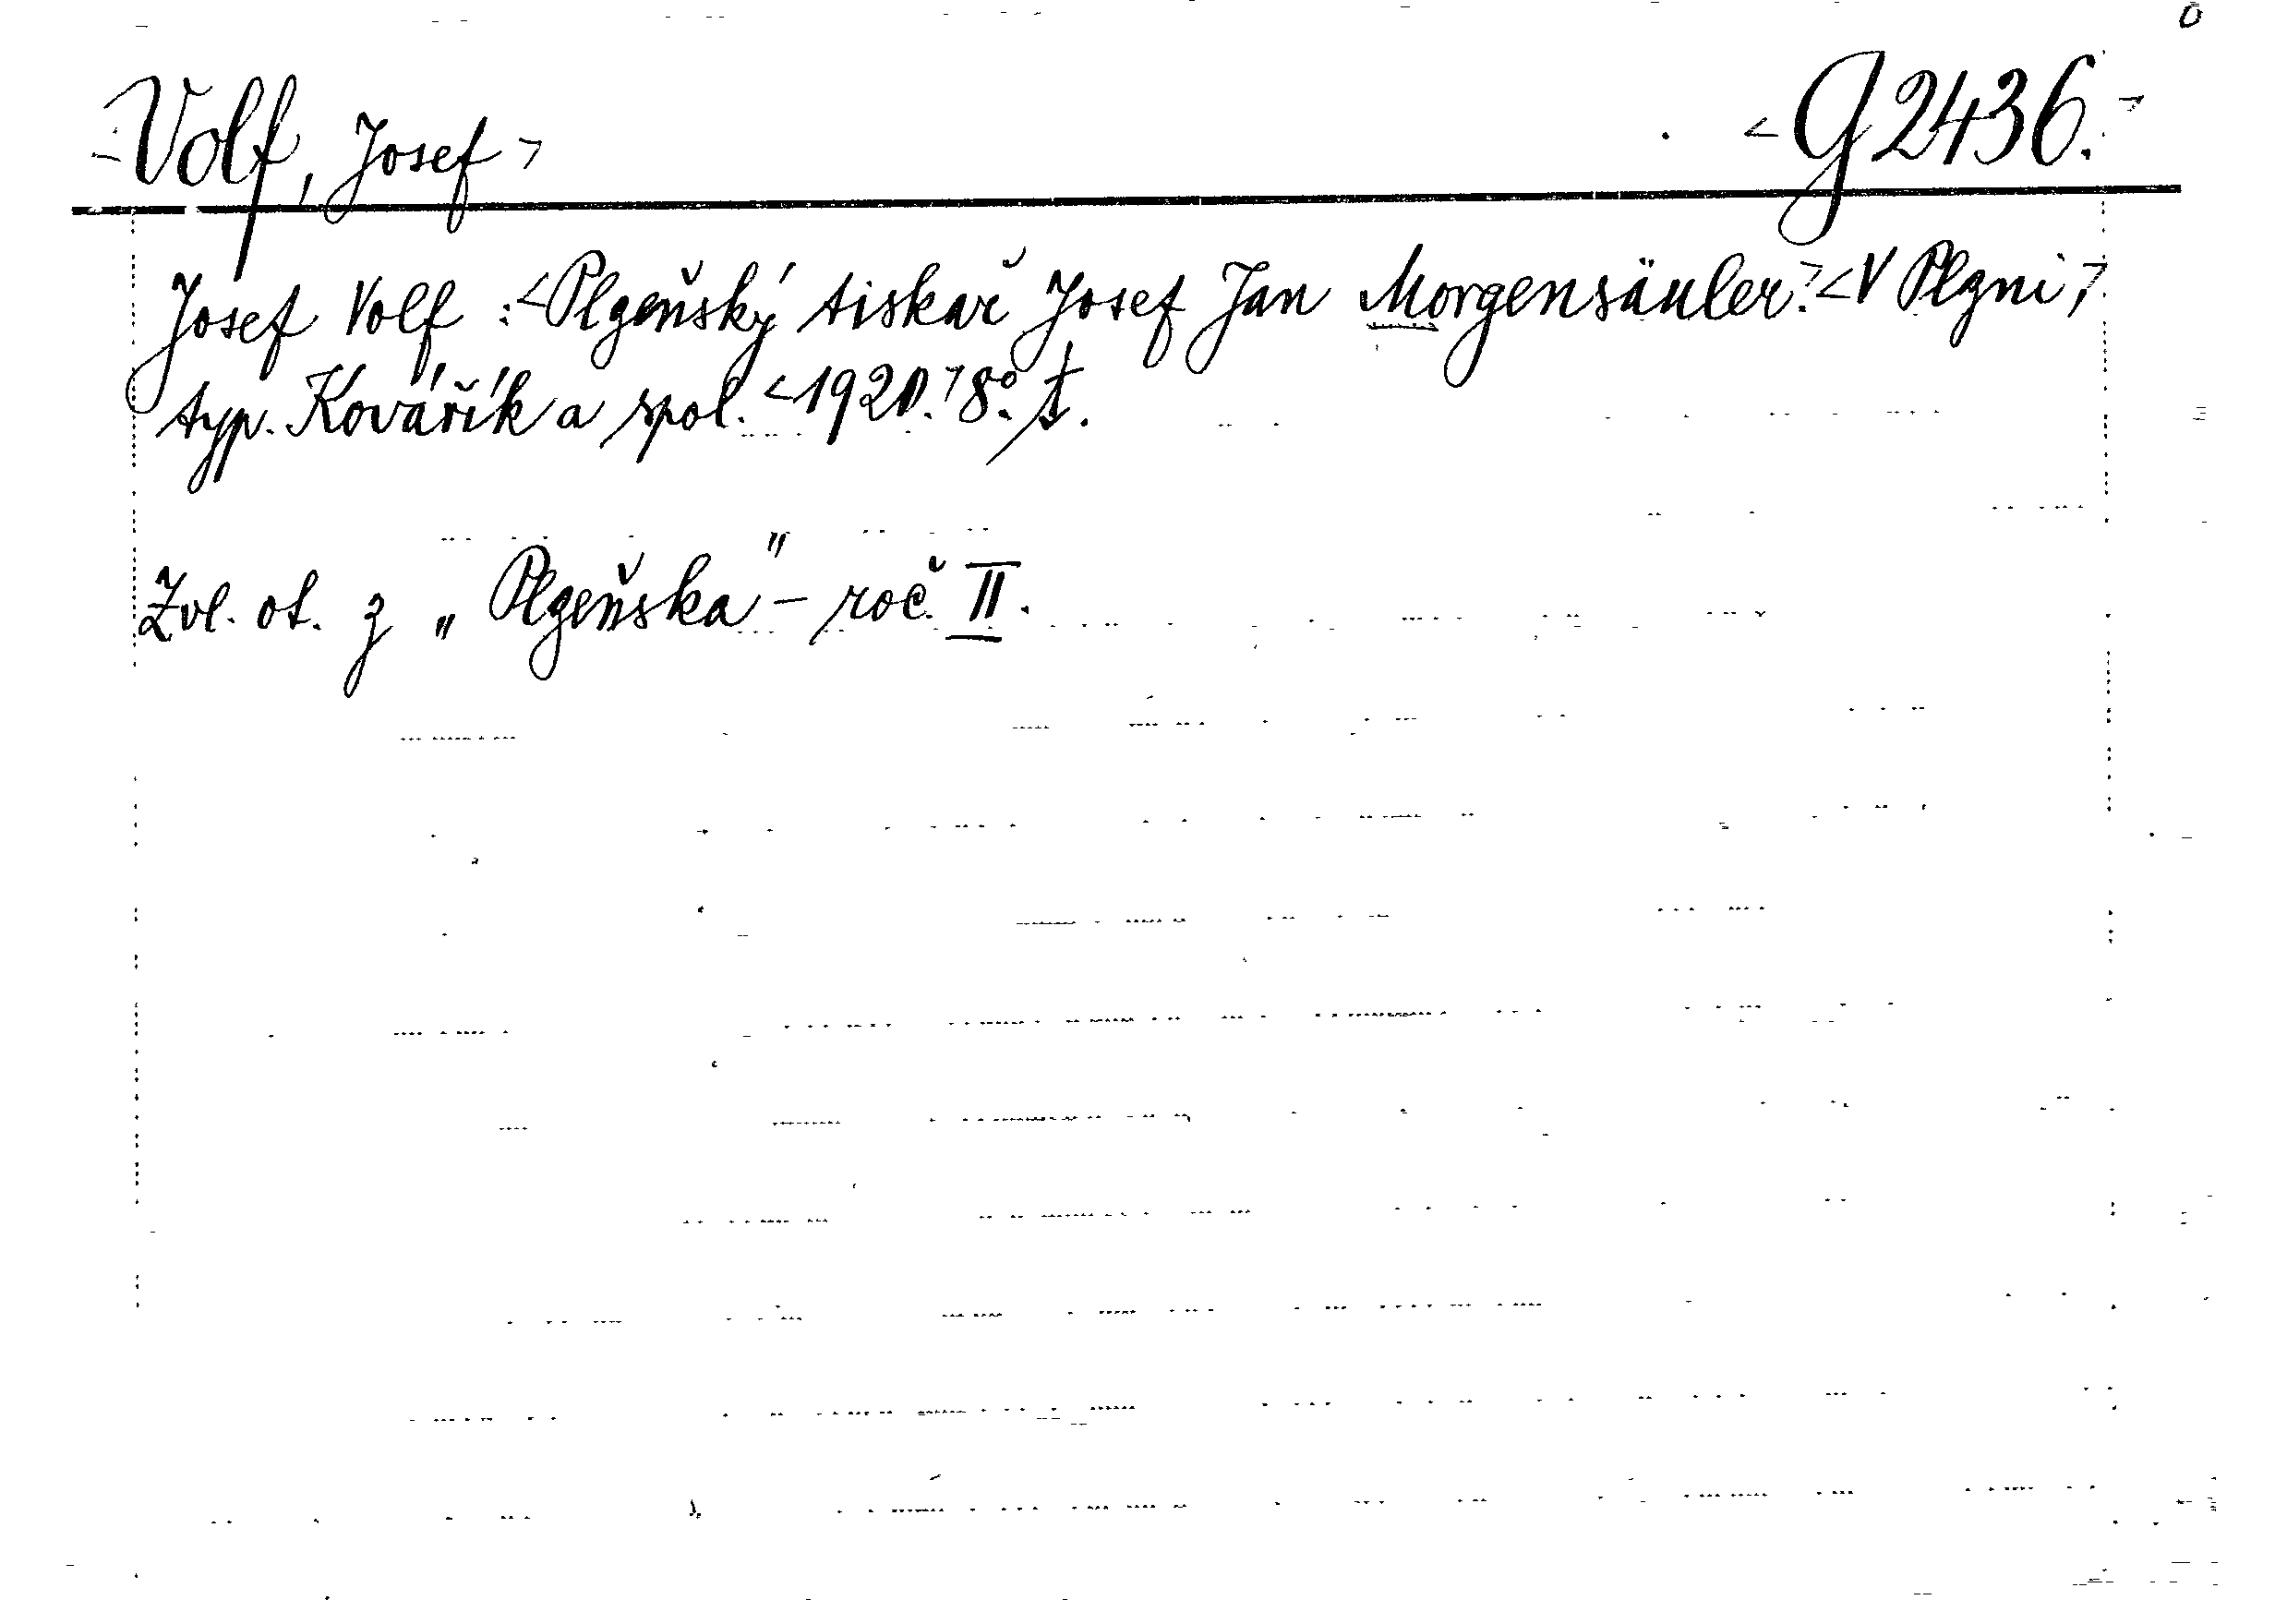 <Volf, Josef> <G 2436.>
Josef Volf: <Plzeňský tiskař Josef Jan Morgensäuler.> <V Plzni,>
typ. Kovářík a spol. <1920.> 8°.
Zvl. ot. z „Plzeňska" - roč. II.